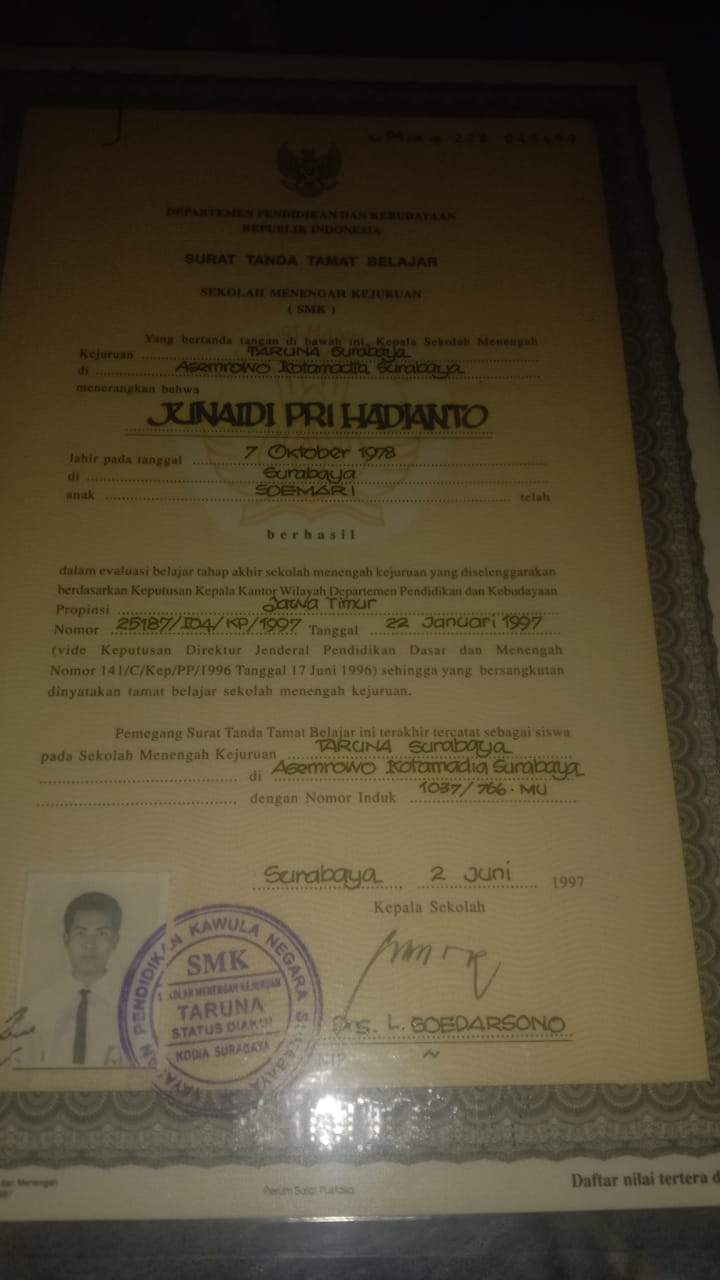 DEPARTEMEN PENDIDIKAN DAN KEBUDAYAAN
REPUBLIK INDONESIA
SURAT TANDA TAMAT BELAJAR
SEKOLAH MENENGAH KEJURUAN
( SMK )
Yang bertanda tangan di bawah ini, Kepala Sekolah Menengah
Kejuruan TARUNA Surabaya
di Asemrowo Kotamadia Surabaya
menerangkan bahwa
JUNAIDI PRI HADIANTO
lahir pada tanggal 7 Oktober 1978
di Surabaya
anak SOEMARI telah
berhasil
dalam evaluasi belajar tahap akhir sekolah menengah kejuruan yang diselenggarakan
berdasarkan Keputusan Kepala Kantor Wilayah Departemen Pendidikan dan Kebudayaan
Propinsi Jawa Timur
Nomor 25187/I04/KP/1997 Tanggal 22 Januari 1997
(vide Keputusan Direktur Jenderal Pendidikan Dasar dan Menengah
Nomor 141/C/Kep/PP/1996 Tanggal 17 Juni 1996) sehingga yang bersangkutan
dinyatakan tamat belajar sekolah menengah kejuruan.
Pemegang Surat Tanda Tamat Belajar ini terakhir tercatat sebagai siswa
pada Sekolah Menengah Kejuruan TARUNA Surabaya
di Asemrowo Kotamadia Surabaya
, dengan Nomor Induk 1037/766.MU
Surabaya, 2 Juni 1997
Kepala Sekolah
Drs. L. SOEDARSONO
PENDIDIKAN KAWULA NEGARA SURABAYA
SMK
SEKOLAH MENENGAH KEJURUAN
TARUNA
STATUS DIAKUI
KODIA SURABAYA
Menengah
Perum
Daftar nilai tertera